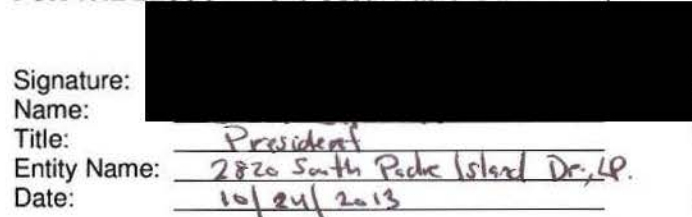 Signature:
Name:
Title: President
Entity Name: 2820 South Padre Island Dr., LP.
Date: 10/24/2013